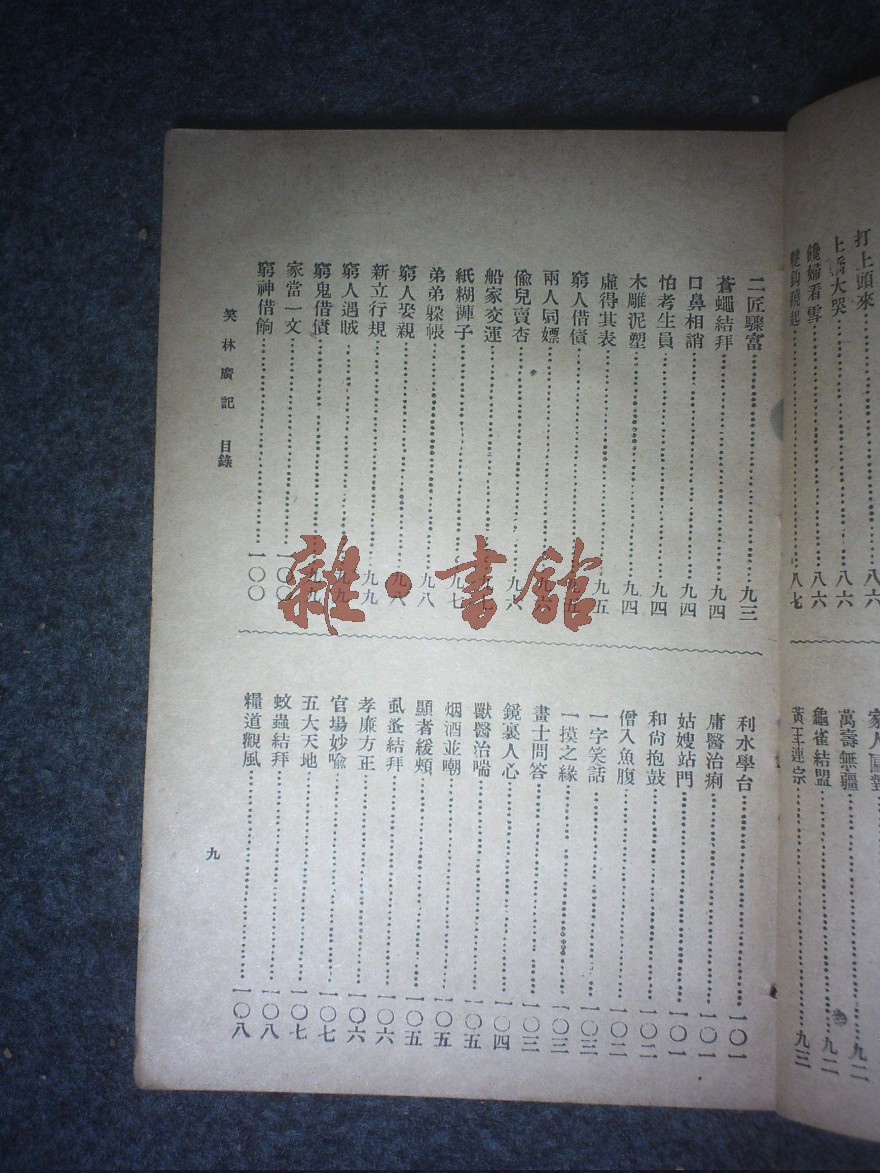 打上頭來……八六
上轎大哭……八六
饞婦看雪……八六
八七
萬壽無疆……九二
龜雀結盟……九二
黃王連宗……九三
二匠驟富……九三
蒼蠅結拜……九四
口鼻相誚……九四
怕考生員……九四
木雕泥塑……九四
虛得其表……九五
窮人借債……九五
兩人同嫖……九六
偷兒賣杏……九六
船家交運……九七
紙糊褲子……九七
弟弟躲帳……九八
窮人娶親……九八
新立行規……九九
窮人遇賊……九九
窮鬼借債……九九
家當一文……一〇〇
窮神借餉……一〇〇
利水學台……一〇一
庸醫治痢……一〇一
姑嫂站門……一〇一
和尚抱鼓……一〇二
僧入魚腹……一〇二
一字笑話……一〇三
一摸之緣……一〇三
畫士問答……一〇三
鏡裏人心……一〇四
獸醫治喘……一〇五
烟酒並嘲……一〇五
顯者緩頰……一〇五
虱蚤結拜……一〇六
孝廉方正……一〇六
官場妙喻……一〇七
五大天地……一〇七
蚊蟲結拜……一〇八
糧道觀風……一〇八
笑林廣記 目錄
九
雜·書館